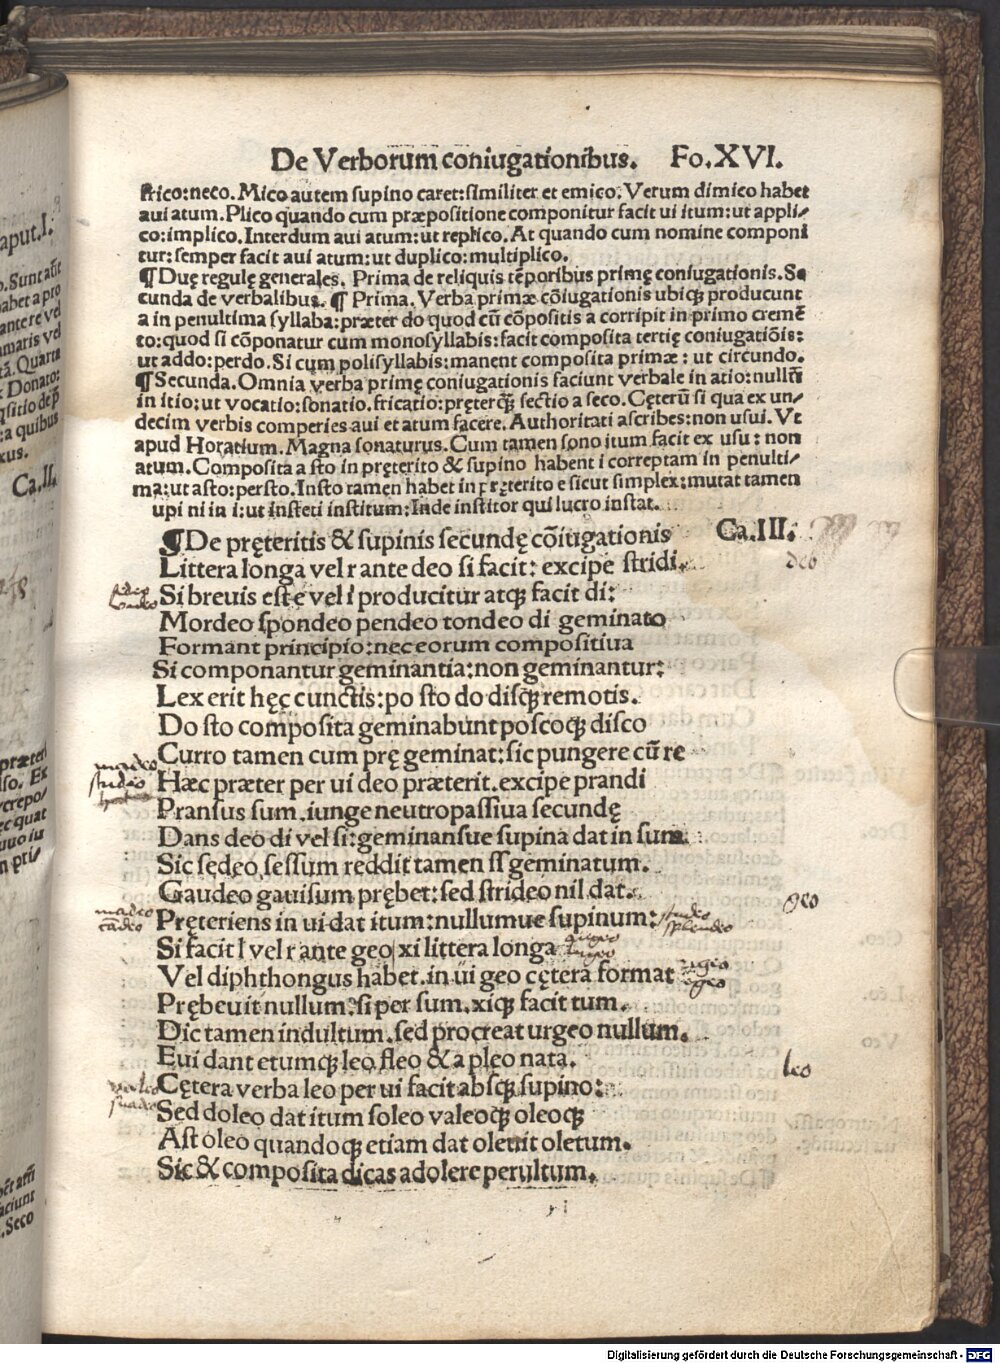 De Verborum coniugationibus. Fo.XVI.
frico:neco. Mico autem supino caret:similiter et emico. Verum dimico habet
aui atum. Plico quando cum præpositione componitur facit ui itum:ut appli/
co:implico. Interdum aui atum:ut replico. At quando cum nomine componi
tur:semper facit aui atum:ut duplico:multiplico.
¶ Duę regulę generales. Prima de reliquis tẽporibus primę coniugationis. Se
cunda de verbalibus. ¶ Prima. Verba primæ cõiugationis ubiqȝ producunt
a in penultima syllaba:præter do quod cũ cõpositis a corripit in primo cremẽ
to:quod si cõponatur cum monosyllabis:facit composita tertię coniugatiõis:
ut addo:perdo. Si cum polisyllabis:manent composita primæ: ut circundo.
¶ Secunda. Omnia verba primę coniugationis faciunt verbale in atio:nullũ
in itio:ut vocatio:sonatio. fricatio:pręterqȝ sectio a seco. Cęterũ si qua ex un/
decim verbis comperies aui et atum facere. Authoritati ascribes:non usui. Vt
apud Horatium. Magna sonaturus. Cum tamen sono itum facit ex usu: non
atum. Composita a sto in pręterito & supino habent i correptam in penulti/
ma:ut asto:persto. Insto tamen habet in pręterito e sicut simplex:mutat tamen
upi ni in i:ut insteti institum:Inde institor qui lucro instat.
¶De pręteritis & supinis secundę cõiugationis Ca.III.
Littera longa vel r ante deo si facit: excipe stridi.
deo
Si breuis est e vel i producitur atqȝ facit di:
Mordeo spondeo pendeo tondeo di geminato
Formant principio:nec eorum compositiua
Si componantur geminantia:non geminantur:
Lex erit hęc cunctis:po sto do disqȝ remotis.
Do sto composita geminabunt poscoqȝ disco
Curro tamen cum prę geminat:sic pungere cũ re
Hæc præter per ui deo præterit.excipe prandi
Pransus sum.iunge neutropassiua secundę
Dans deo di vel si:geminansue supina dat in sum.
Sic sedeo,sessum reddit tamen ss geminatum.
Gaudeo gauisum prębet:sed strideo nil dat.
geo
Pręteriens in ui dat itum:nullumue supinum:
Si facit l vel r ante geo xi littera longa
Vel diphthongus habet.in ui geo cętera format
Prębeuit nullum:si per sum.xiqȝ facit tum.
Dic tamen indultum.sed procreat urgeo nullum.
Eui dant etumqȝ leo,fleo & a pleo nata.
leo
Cętera verba leo per ui facit absqȝ supino:
Sed doleo dat itum soleo valeoqȝ oleoqȝ
Ast oleo quandoqȝ etiam dat oleuit oletum.
Sic & composita dicas adolere perultum.
Digitalisierung gefördert durch die Deutsche Forschungsgemeinschaft - DFG